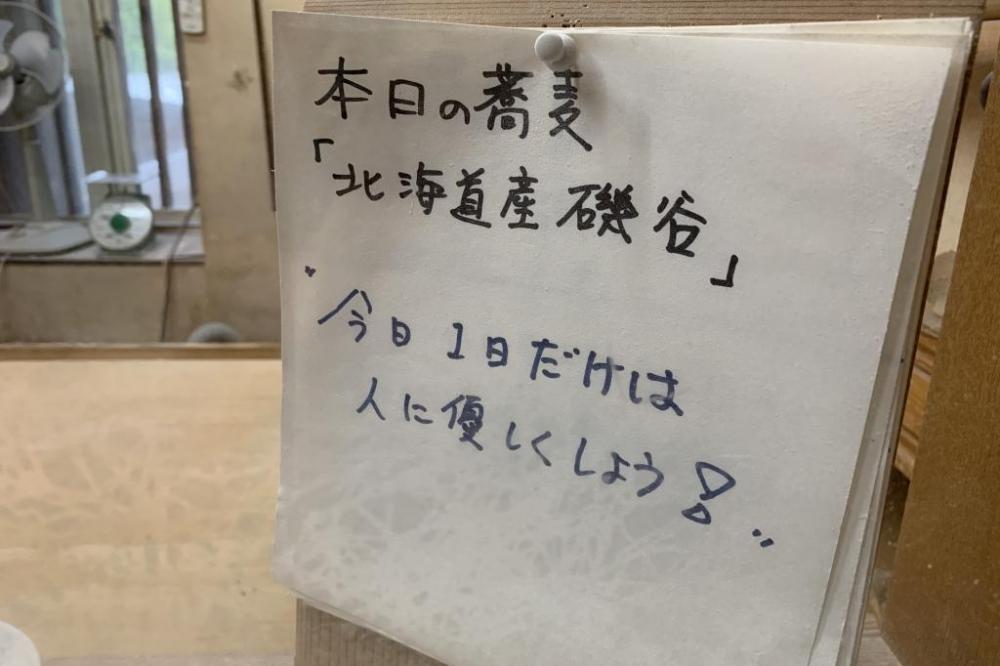 本日の蕎麦
「北海道産 磯谷」
"今日1日だけは
人に優しくしよう!"